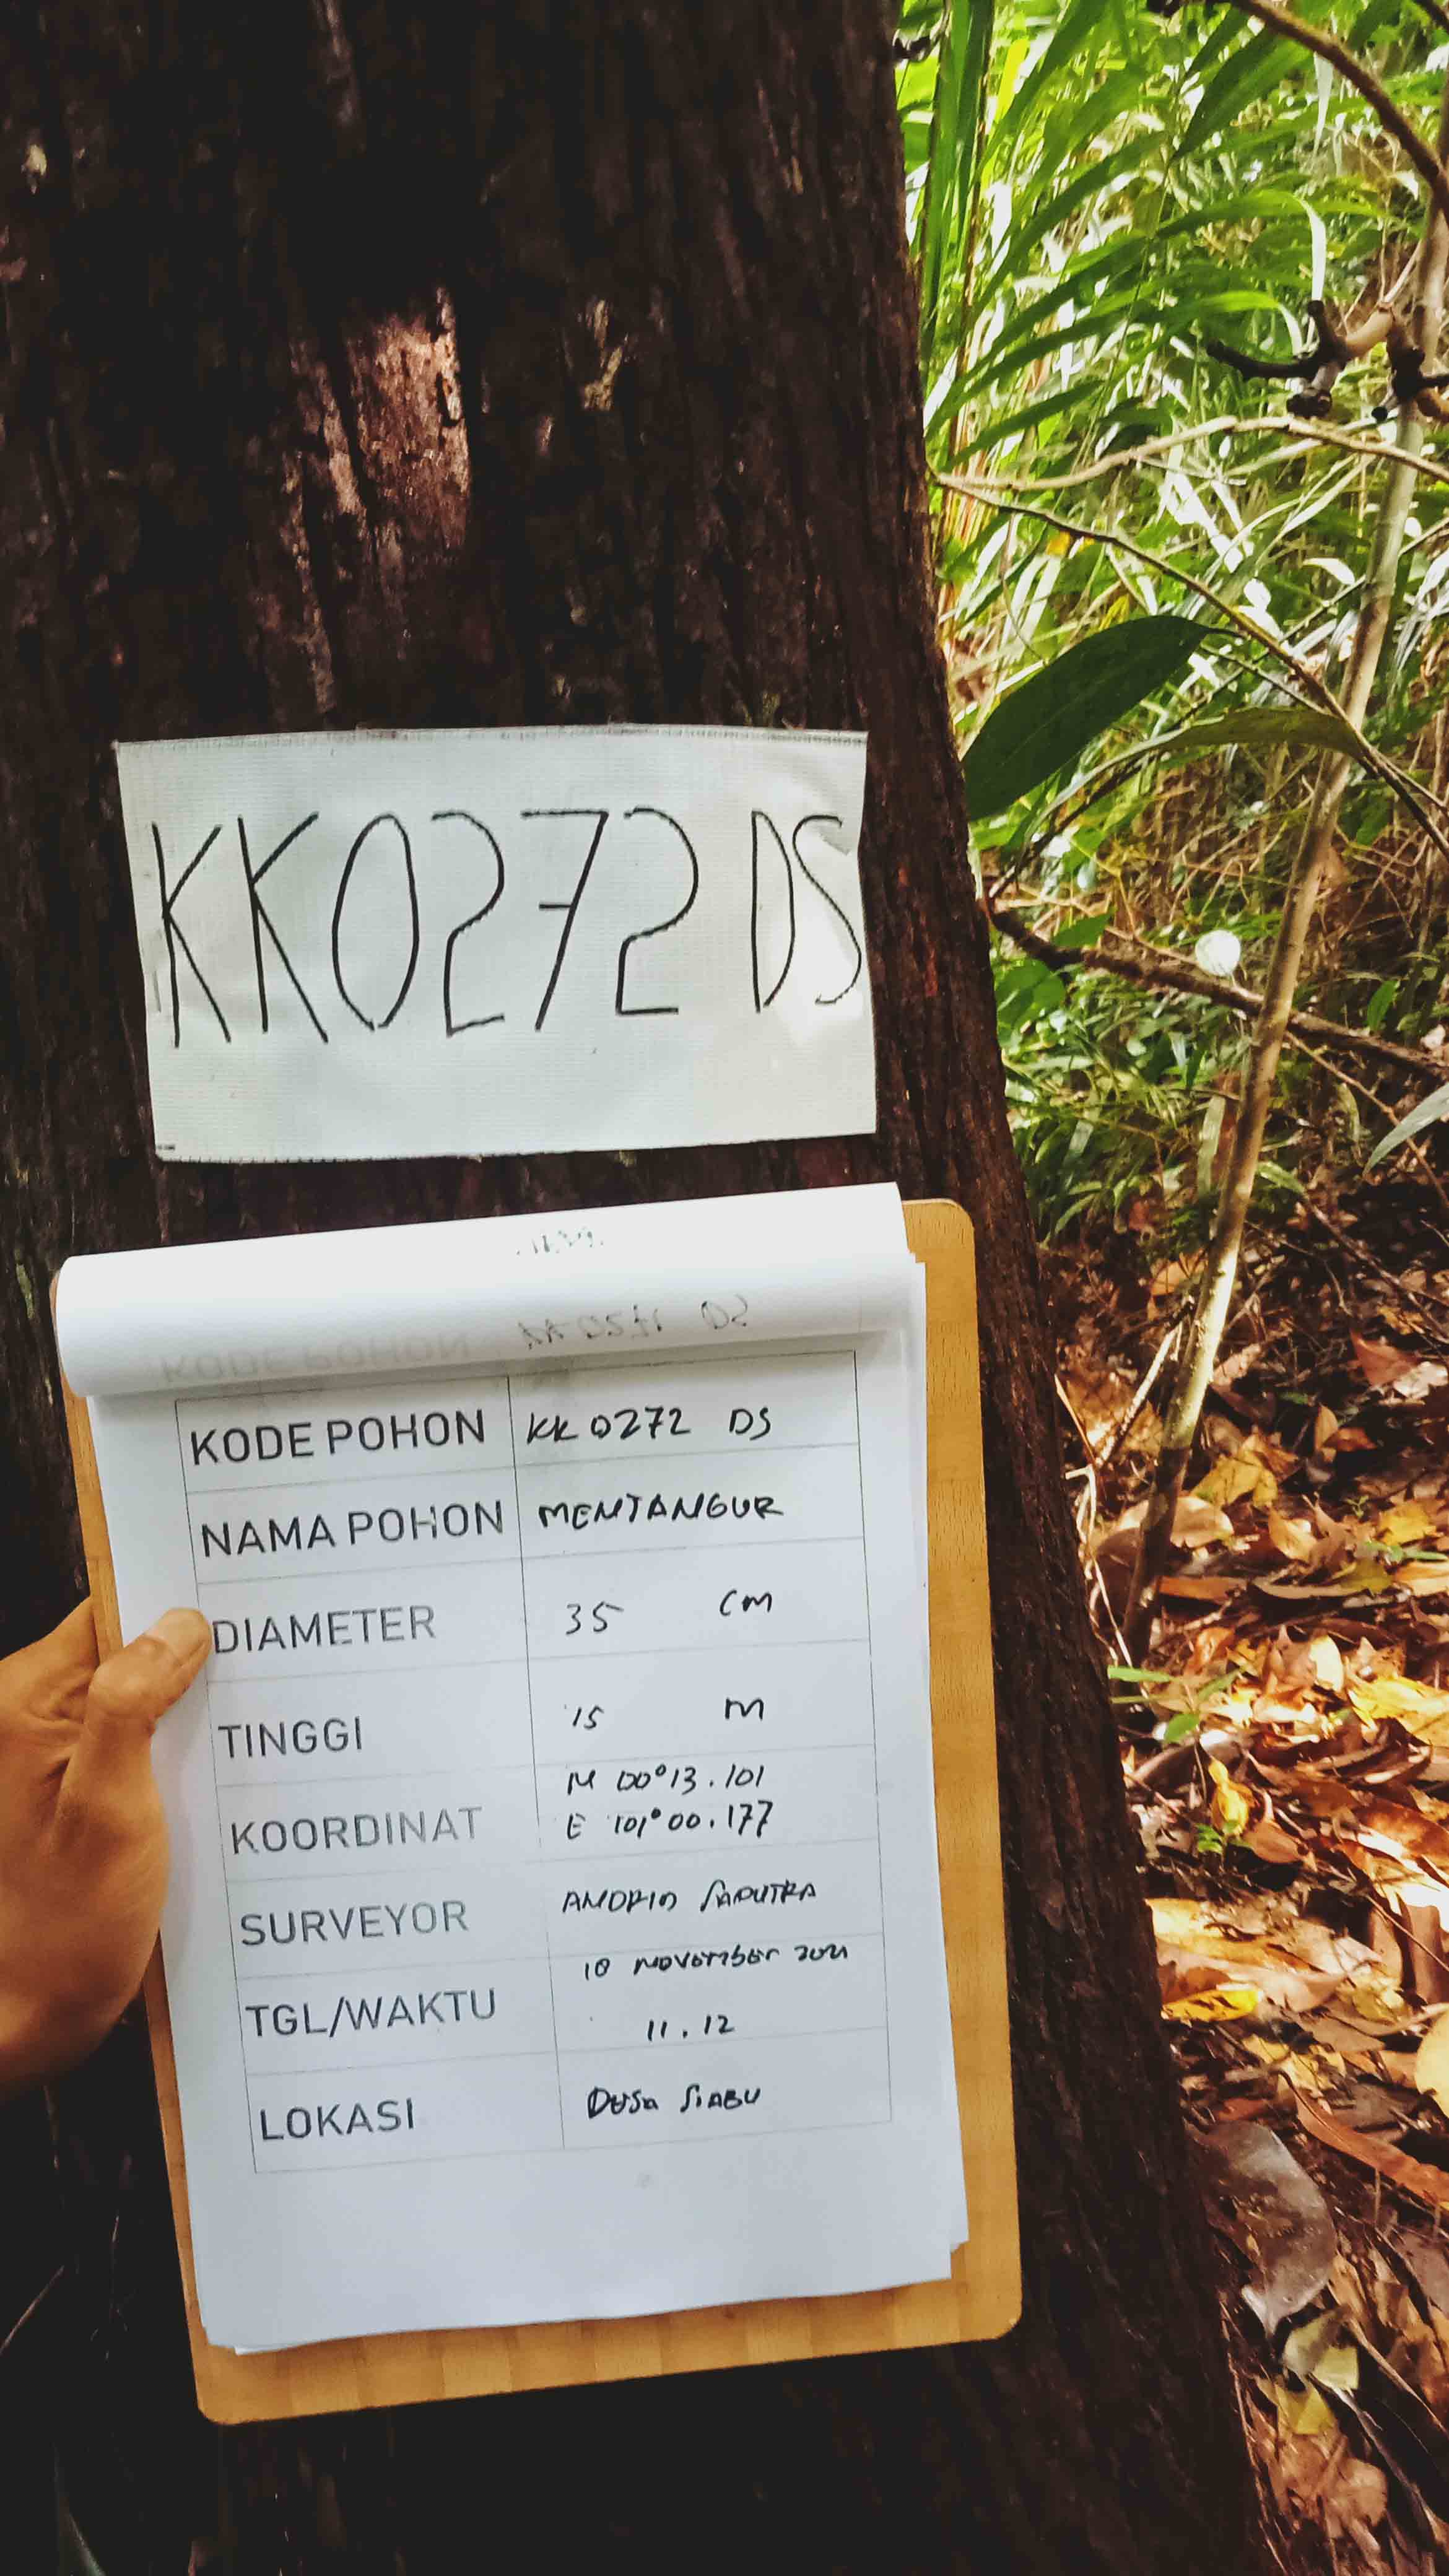 KK0272 DS
KODE POHON KK 0272 DS
NAMA POHON MENTANGUR
DIAMETER 35 cm
TINGGI 15 m
KOORDINAT N 00°13.101
E 101°00.177
SURVEYOR SAPUTRA
TGL/WAKTU 10 NOVEMBER 2021
11.12
LOKASI DESA SIABU